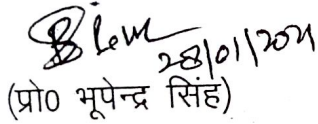 28/01/2021
(प्रो0 भूपेन्द्र सिंह)